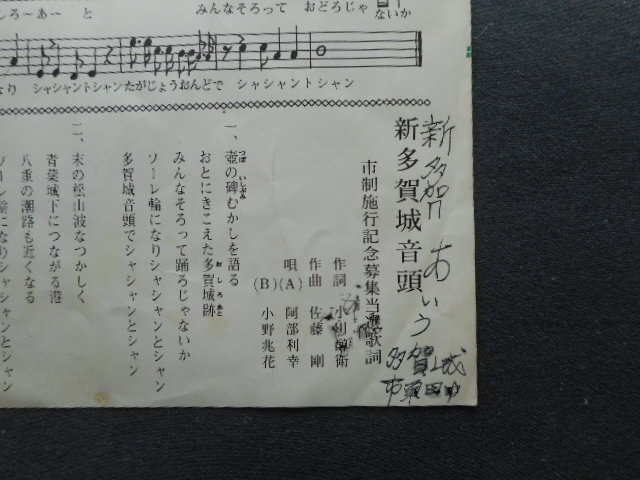 しろーあー と みんなそろって おどろじゃ ないか
なり シャシャントシャン たがじょうおんどで シャシャントシャン
新多賀城音頭
市制施行記念募集当選歌詞
作詞 小田
作曲 佐藤 剛
唄(A) 阿部利幸
(B) 小野兆花
一、壺の碑むかしを語る
つぼ いしぶみ
おとにきこえた多賀城跡
おしろあと
みんなそろって踊ろじゃないか
ソーレ輪になりシャシャンとシャン
多賀城音頭でシャシャンとシャン
二、末の松山波なつかしく
青葉城下につながる港
八重の潮路も近くなる
ソーレ輪になりシャシャンとシャン
新多賀
多賀城
市